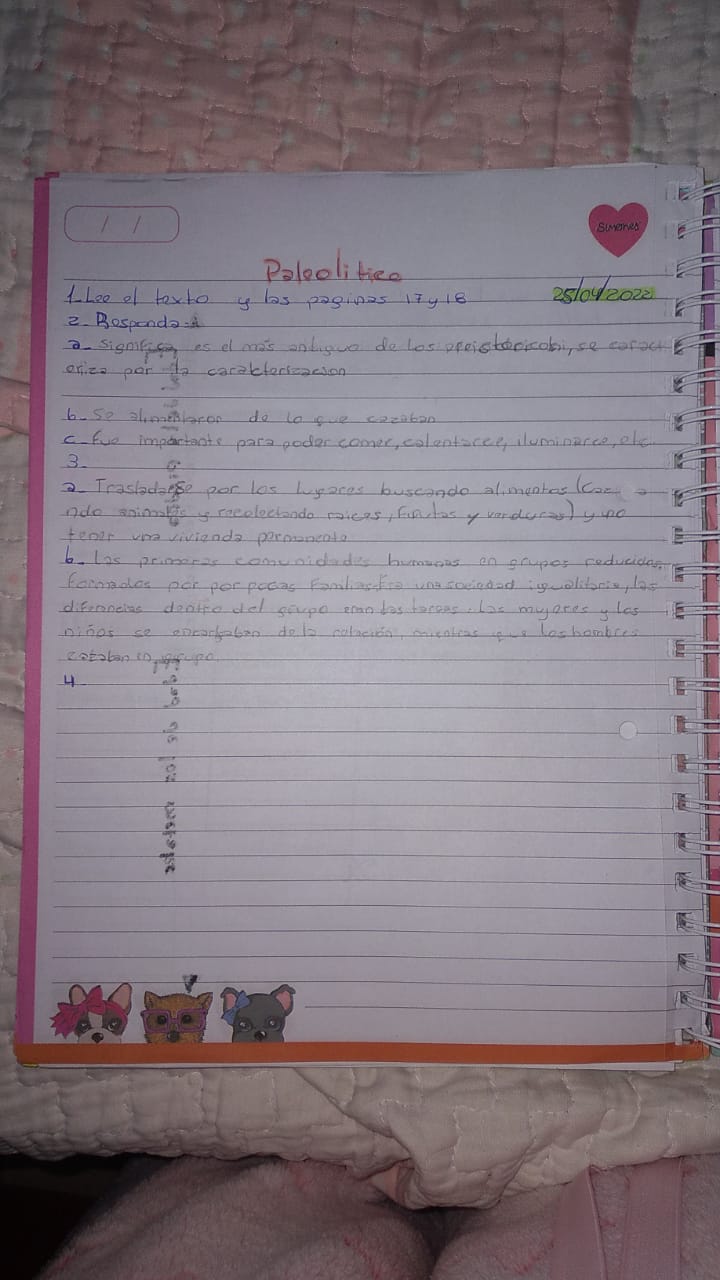 / /
Paleolitico
1. Lee el texto y las paginas 17 y 18
25/04/2022
2. Responda:
a. Significa es el más antiguo de los se caract
eriza por la caracterizacion
b. Se alimentaron de lo que cazaban
c. Fue importante para poder comer, calentarce, iluminarce, etc.
3.
a. Trasladarse por los lugares buscando alimentos (caz a
ndo animales y recolectando raices, frutas y verduras) y no
tener una vivienda permanente
b. Las primeras comunidades humanas en grupos reducidos,
formados por por pocas familias. Era una sociedad igualitaria, las
diferencias dentro del grupo eran las tareas: las mujeres y los
niños se encargaban de la mientras que los hombres
cazaban en grupo.
4.